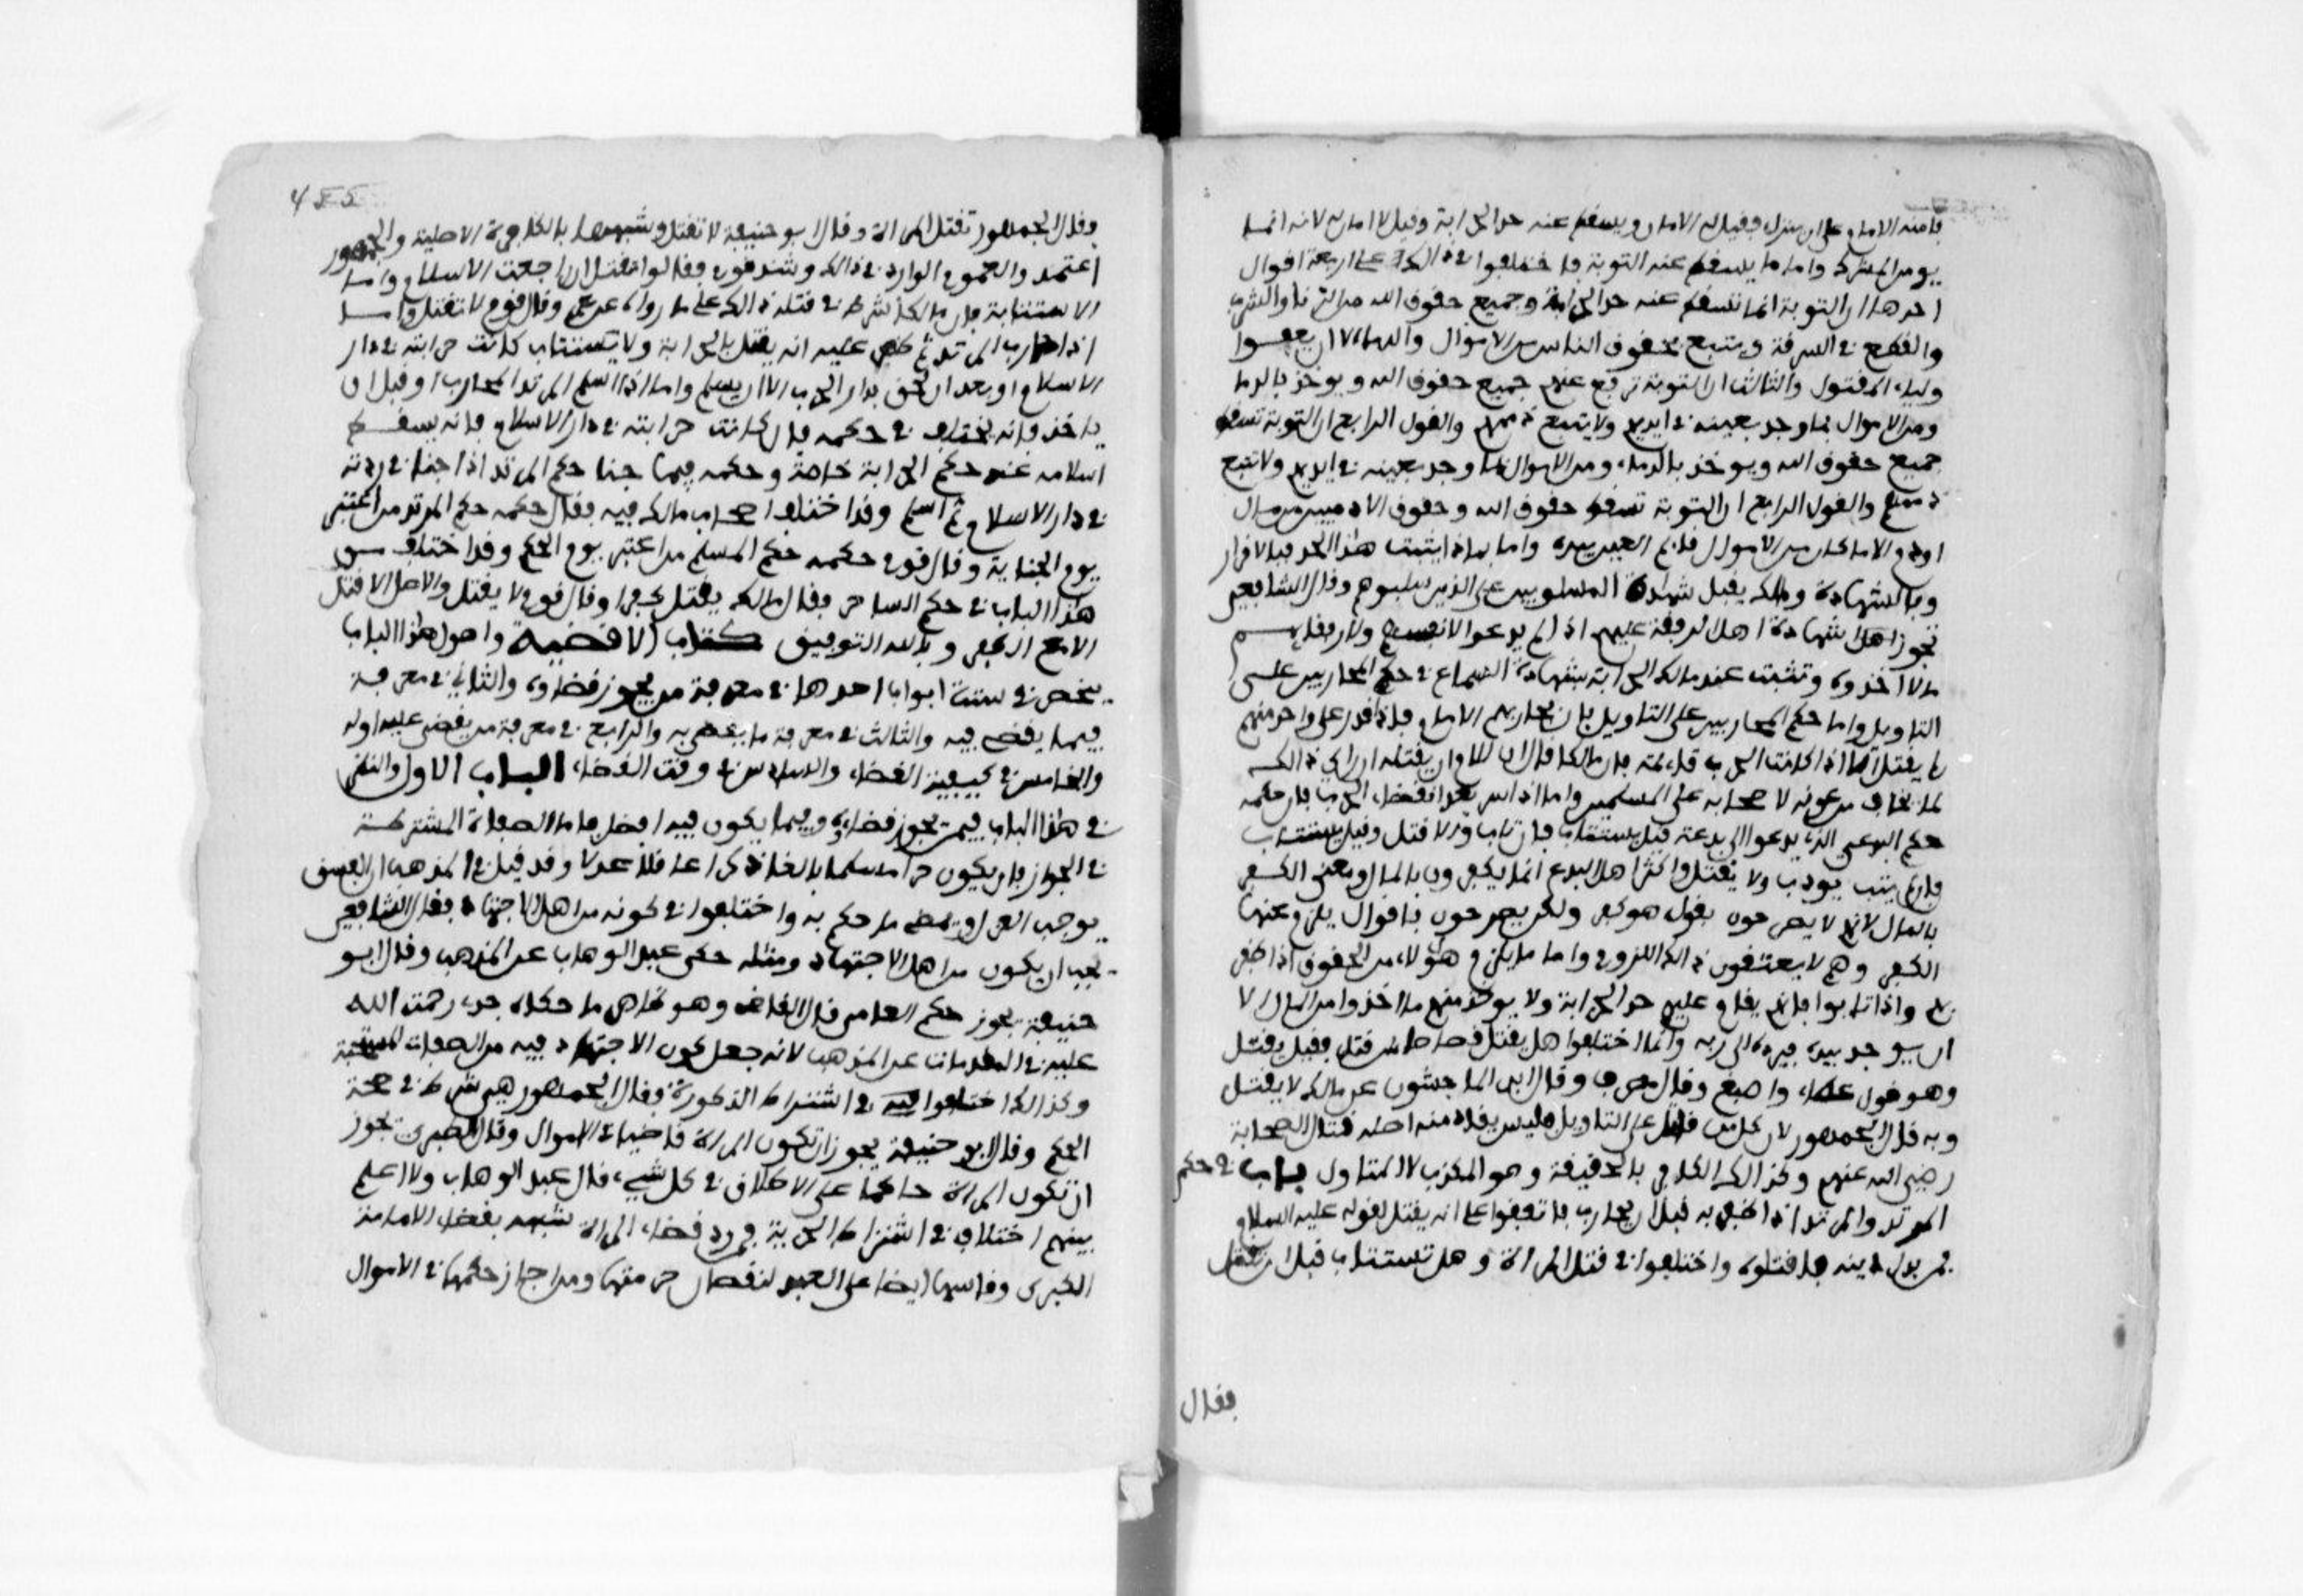 فامنه الامام على ان ينزل فقيل له الامان ويسقط عنه حد الحرابة وقيل لا امان له لانه انما
يومن المشرك واما ما يسقط عنه التوبة فاختلفوا في ذالك على اربعة اقوال
احدها ان التوبة انما تسقط عنه حد الحرابة وجميع حقوق الله من الزنا والشرب
والقطع في السرقة ويتبع بحقوق الناس من الاموال والدماء الا ان يعفوا
ولياء المقتول والثالث ان التوبة ترفع عنهم جميع حقوق الله ويوخذ بالدما
ومن الاموال بما وجد بعينه في ايديهم ولا يتبع ذممهم والقول الرابع ان التوبة تسقط
جميع حقوق الله ويوخذ بالدماء ومن الاموال بما وجد بعينه في ايديهم ولا تتبع
ذممهم والقول الرابع ان التوبة تسقط حقوق الله وحقوق الادميين من مال
او دم الا ما كان من الاموال قايم العين بيده واما بماذا يثبت هذا الحد فبالاقرار
وبالشهادة ومالك يقبل شهادة المسلوبين على الذين سلبوهم وقال الشافعي
تجوز شهادة اهل الرفقة عليهم اذا لم يدعوا لانفسهم ولا لرفقايهم
مالا اخذوه وتثبت عند مالك الحرابة بشهادة السماع في حكم المحاربين على
التاويل واما حكم المحاربين على التاويل فان محاربهم الامام فاذا قدر على واحد منهم
لم يقتل الا اذا كانت الحرب قايمة فان مالكا قال ان للامام ان يقتله ان راي ذالك
لما يخاف من عونه لاصحابه على المسلمين واما اذا اسر بعد انقضاء الحرب فان حكمه
حكم البدعي الذي يدعوا الى بدعة قيل يستتاب فان تاب والا قتل وقيل يستتاب
فان لم يتب يودب ولا يقتل واكثر اهل البدع انما يكفرون بالمال ومعنى الكفر
بالمال لانهم لا يصرحون بقول هو كفر ولكن يصرحون باقوال يلزم عنها
الكفر وهم لا يعتقدون ذالك اللزوم واما ما يلزم هولاء من الحقوق اذا ظفر
بهم واذا تابوا فانهم يقام عليهم حد الحرابة ولا يوخذ منهم ما اخذوا من المال الا
ان يوجد بيده فيرده الى ربه وانما اختلفوا هل يقتل قصاصا بمن قتل فقيل يقتل
وهو قول عطاء واصبغ وقال مطرف وقال ابن الماجشون عن مالك لا يقتل
وبه قال الجمهور لان كل من قاتل على التاويل فليس يقاد منه اصله قتال الصحابة
رضي الله عنهم وكذالك الكافر بالحقيقة وهو المكذب لا المتاول باب في حكم
المرتد والمرتد اذا ظفر به قبل ان يحارب فاتفقوا على انه يقتل لقوله عليه السلام
من بدل دينه فاقتلوه واختلفوا في قتل المراة وهل تستتاب قبل ان تقتل
فقال
وقال الجمهور تقتل المراة وقال ابو حنيفة لا تقتل وشبهها بالكافرة الاصلية والجمهور
اعتمد والعموم الوارد في ذالك وشذ قوم فقالوا تقتل ان راجعت الاسلام واما
الاستتابة فان مالكا شرط في قتله ذالك على ما رواه عن عمر وقال قوم لا تقتل واما
اذا حارب المرتد ثم ظهر عليه انه يقتل بالحرابة ولا يستتاب كانت حرابته في دار
الاسلام او بعد ان لحق بدار الحرب الا ان يسلم واما اذا اسلم المرتد المحارب او قبل ان
ياخذ فانه يختلف في حكمه فان كانت حرابته في دار الاسلام فانه يسقط
اسلامه عنه حكم الحرابة خاصة وحكمه فيما جنا حكم المرتد اذا جنا في ردته
في دار الاسلام ثم اسلم وقد اختلف اصحاب مالك فيه فقال حكمه حكم المرتد من اعتبر
يوم الجناية وقال قوم حكمه حكم المسلم من اعتبر يوم الحكم وقد اختلف من
هذا الباب في حكم الساحر فقال مالك يقتل كفرا وقال قوم لا يقتل والاصل الا قتل
الا مع الكفر وبالله التوفيق كتاب الاقضية واصول هذا الباب
ينحصر في ستة ابواب احدها في معرفة من يجوز قضاوه والثاني في معرفة
فيما يقضى فيه والثالث في معرفة ما يقضى به والرابع في معرفة من يقضي عليه او له
والخامس في كيفية القضاء والسادس في وقت القضاء الباب الاول والنظر
في هذا الباب فيمن يجوز قضاوه وفيما يكون فيه افضل فاما الصفات المشترطة
في الجواز فان يكون حرا مسلما بالغا ذكرا عاقلا عدلا وقد قيل في المذهب ان الفسق
يوجب العزل ويمضى ما حكم به واختلفوا في كونه من اهل الاجتهاد فقال الشافعي
يجب ان يكون من اهل الاجتهاد ومثله حكى عبد الوهاب عن المذهب وقال ابو
حنيفة يجوز حكم العامي قال القاضي وهو ظاهر ما حكاه جدي رحمت الله
عليه في المقدمات عن المذهب لانه جعل كون الاجتهاد فيه من الصفات المستحبة
وكذالك اختلفوا فيه في اشتراط الذكورة فقال الجمهور هي شرط في صحة
الحكم وقال ابو حنيفة يجوز ان تكون المراة قاضيا في الاموال وقال الطبري تجوز
ان تكون المراة حاكما على الاطلاق في كل شيء قال عبد الوهاب ولا اعلم
بينهم اختلاف في اشتراط الحرية فمن رد قضاء المراة شبهه بقضاء الامامة
الكبرى وقاسها ايضا على العبد لنقصان حرمتها ومن اجاز حكمها في الاموال